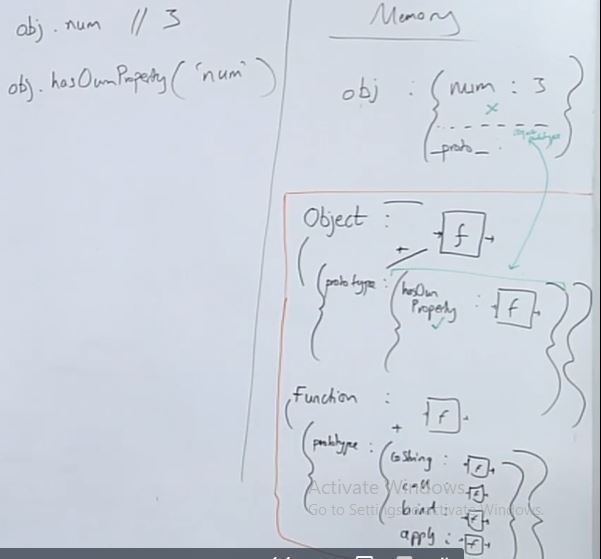 obj . num // 3
obj. hasOwnProperty('num')
Memory
obj : { num : 3 }
x
__proto__ :
Object : f
+
prototype : { hasOwn
Property : f }
Function : f
+
prototype : { toString : f
call f
bind : f
apply : f
Activate Windows
Go to Settings to activate Windows.